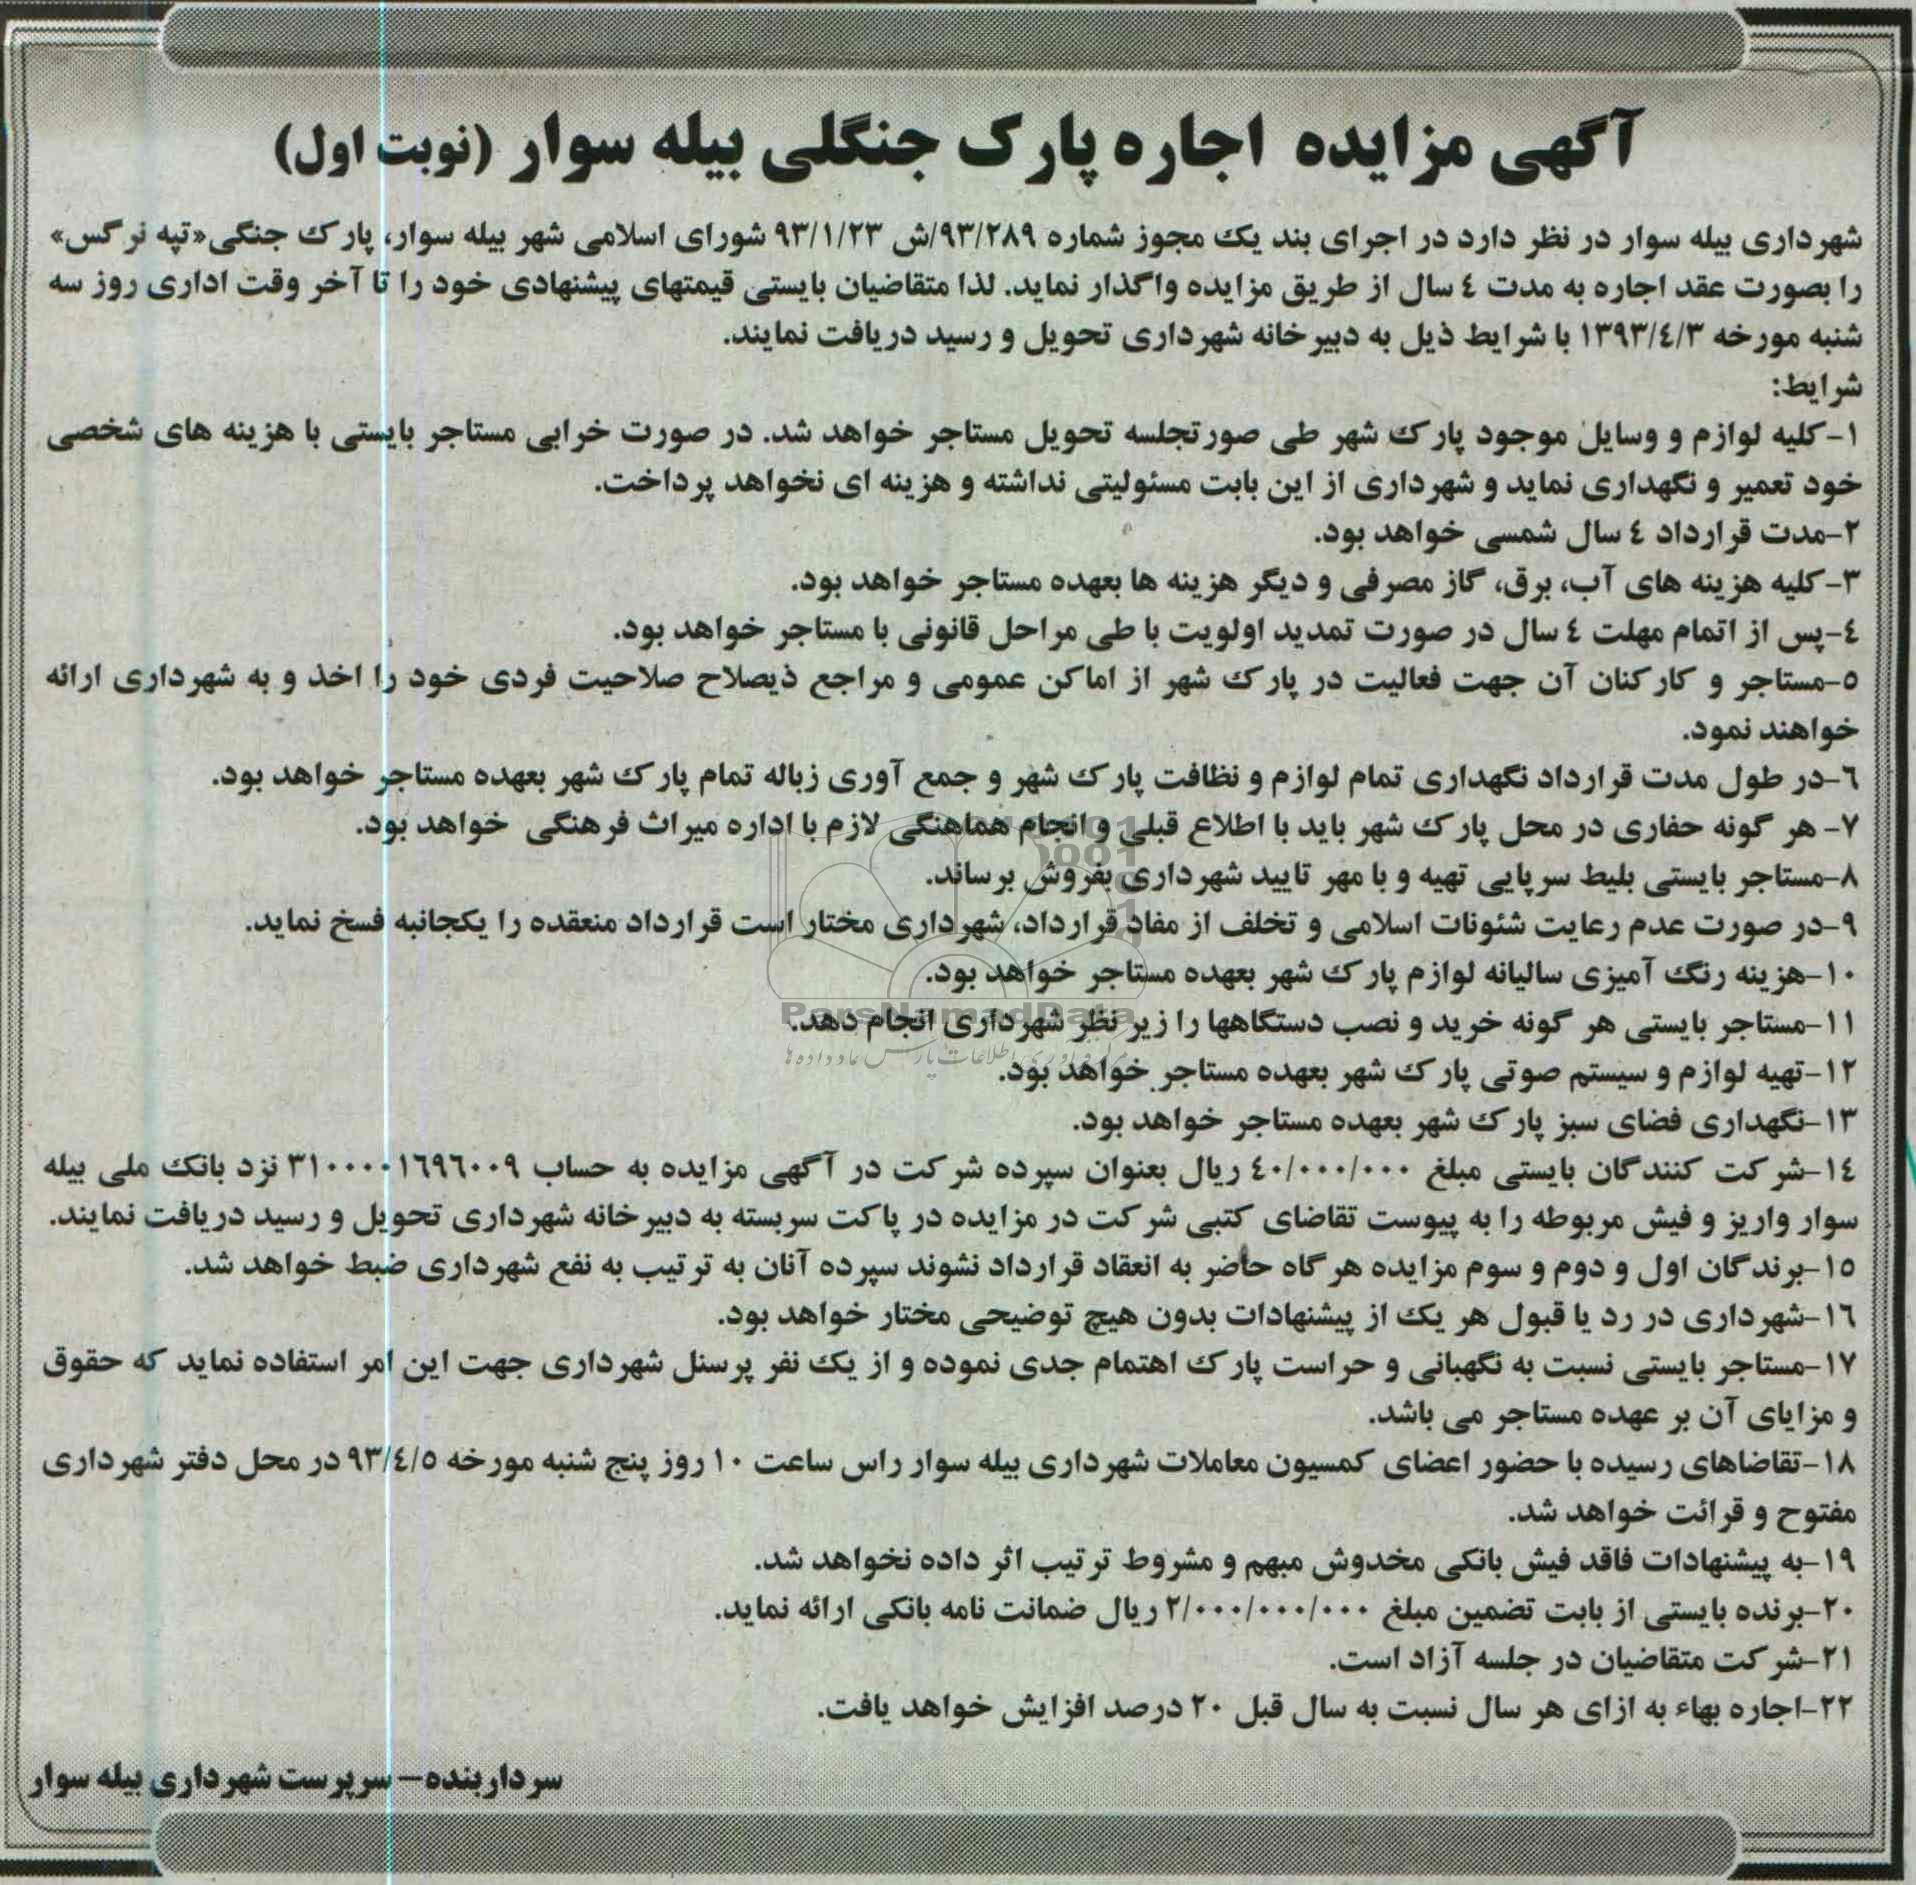 آگهی مزایده اجاره پارک جنگلی بیله سوار (نوبت اول)
شهرداری بیله سوار در نظر دارد در اجرای بند یک مجوز شماره ۹۳/۲۸۹/ش ۹۳/۱/۲۳ شورای اسلامی شهر بیله سوار، پارک جنگی«تپه نرگس»
را بصورت عقد اجاره به مدت ٤ سال از طریق مزایده واگذار نماید. لذا متقاضیان بایستی قیمتهای پیشنهادی خود را تا آخر وقت اداری روز سه
شنبه مورخه ۱۳۹۳/٤/۳ با شرایط ذیل به دبیرخانه شهرداری تحویل و رسید دریافت نمایند.
شرایط:
۱-کلیه لوازم و وسایل موجود پارک شهر طی صورتجلسه تحویل مستاجر خواهد شد. در صورت خرابی مستاجر بایستی با هزینه های شخصی
خود تعمیر و نگهداری نماید و شهرداری از این بابت مسئولیتی نداشته و هزینه ای نخواهد پرداخت.
۲-مدت قرارداد ٤ سال شمسی خواهد بود.
۳-کلیه هزینه های آب، برق، گاز مصرفی و دیگر هزینه ها بعهده مستاجر خواهد بود.
٤-پس از اتمام مهلت ٤ سال در صورت تمدید اولویت با طی مراحل قانونی با مستاجر خواهد بود.
٥-مستاجر و کارکنان آن جهت فعالیت در پارک شهر از اماکن عمومی و مراجع ذیصلاح صلاحیت فردی خود را اخذ و به شهرداری ارائه
خواهند نمود.
٦-در طول مدت قرارداد نگهداری تمام لوازم و نظافت پارک شهر و جمع آوری زباله تمام پارک شهر بعهده مستاجر خواهد بود.
۷- هر گونه حفاری در محل پارک شهر باید با اطلاع قبلی و انجام هماهنگی لازم با اداره میراث فرهنگی خواهد بود.
۸-مستاجر بایستی بلیط سرپایی تهیه و با مهر تایید شهرداری بفروش برساند.
۹-در صورت عدم رعایت شئونات اسلامی و تخلف از مفاد قرارداد، شهرداری مختار است قرارداد منعقده را یکجانبه فسخ نماید.
۱۰-هزینه رنگ آمیزی سالیانه لوازم پارک شهر بعهده مستاجر خواهد بود.
ParsNamadData
۱۱-مستاجر بایستی هر گونه خرید و نصب دستگاهها را زیر نظر شهرداری انجام دهد.
۱۲-تهیه لوازم و سیستم صوتی پارک شهر بعهده مستاجر خواهد بود.
۱۳-نگهداری فضای سبز پارک شهر بعهده مستاجر خواهد بود.
۱٤-شرکت کنندگان بایستی مبلغ ٤۰/۰۰۰/۰۰۰ ریال بعنوان سپرده شرکت در آگهی مزایده به حساب ۳۱۰۰۰۰۱٦۹٦۰۰۹ نزد بانک ملی بیله
سوار واریز و فیش مربوطه را به پیوست تقاضای کتبی شرکت در مزایده در پاکت سربسته به دبیرخانه شهرداری تحویل و رسید دریافت نمایند.
۱٥-برندگان اول و دوم و سوم مزایده هرگاه حاضر به انعقاد قرارداد نشوند سپرده آنان به ترتیب به نفع شهرداری ضبط خواهد شد.
۱٦-شهرداری در رد یا قبول هر یک از پیشنهادات بدون هیچ توضیحی مختار خواهد بود.
۱۷-مستاجر بایستی نسبت به نگهبانی و حراست پارک اهتمام جدی نموده و از یک نفر پرسنل شهرداری جهت این امر استفاده نماید که حقوق
و مزایای آن بر عهده مستاجر می باشد.
۱۸-تقاضاهای رسیده با حضور اعضای کمسیون معاملات شهرداری بیله سوار راس ساعت ۱۰ روز پنج شنبه مورخه ۹۳/٤/٥ در محل دفتر شهرداری
مفتوح و قرائت خواهد شد.
۱۹-به پیشنهادات فاقد فیش بانکی مخدوش مبهم و مشروط ترتیب اثر داده نخواهد شد.
۲۰-برنده بایستی از بابت تضمین مبلغ ۲/۰۰۰/۰۰۰/۰۰۰ ریال ضمانت نامه بانکی ارائه نماید.
۲۱-شرکت متقاضیان در جلسه آزاد است.
۲۲-اجاره بهاء به ازای هر سال نسبت به سال قبل ۲۰ درصد افزایش خواهد یافت.
سرداربنده– سرپرست شهرداری بیله سوار